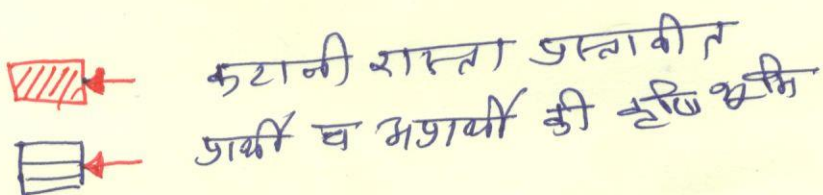 कटानी रास्ता प्रस्तावीत
प्रार्थी व अप्रार्थी की कृषि भूमि